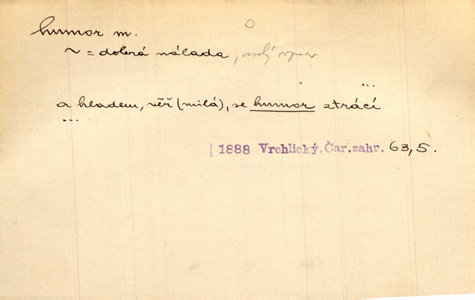 humor m.
~ = dobrá nálada, veselý
...
a hladem, věř (milá), se humor ztrácí
...
1888 Vrchlický, Čar.zahr. 63,5.